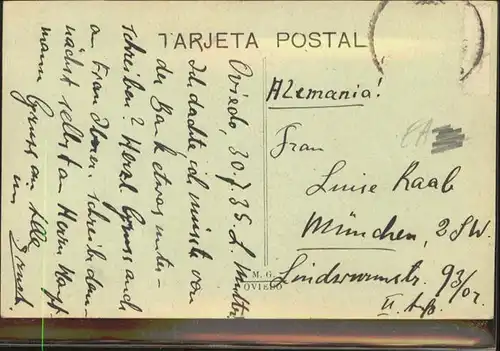 TARJETA POSTAL
Oviedo, 30.7.35 L. Mutter
Ich dachte ich müsste von
der Bank etwas unter-
schreiben? Herzl. Gruss auch
an Frau schreibe dem-
nächst selbst an Herrn Haupt-
mann Gruss an Alle
Ernst.
Alemania!
Frau
Luise Raab
München, 2 SW.
Lindwurmstr. 93/02
II.
M. G.
OVIEDO